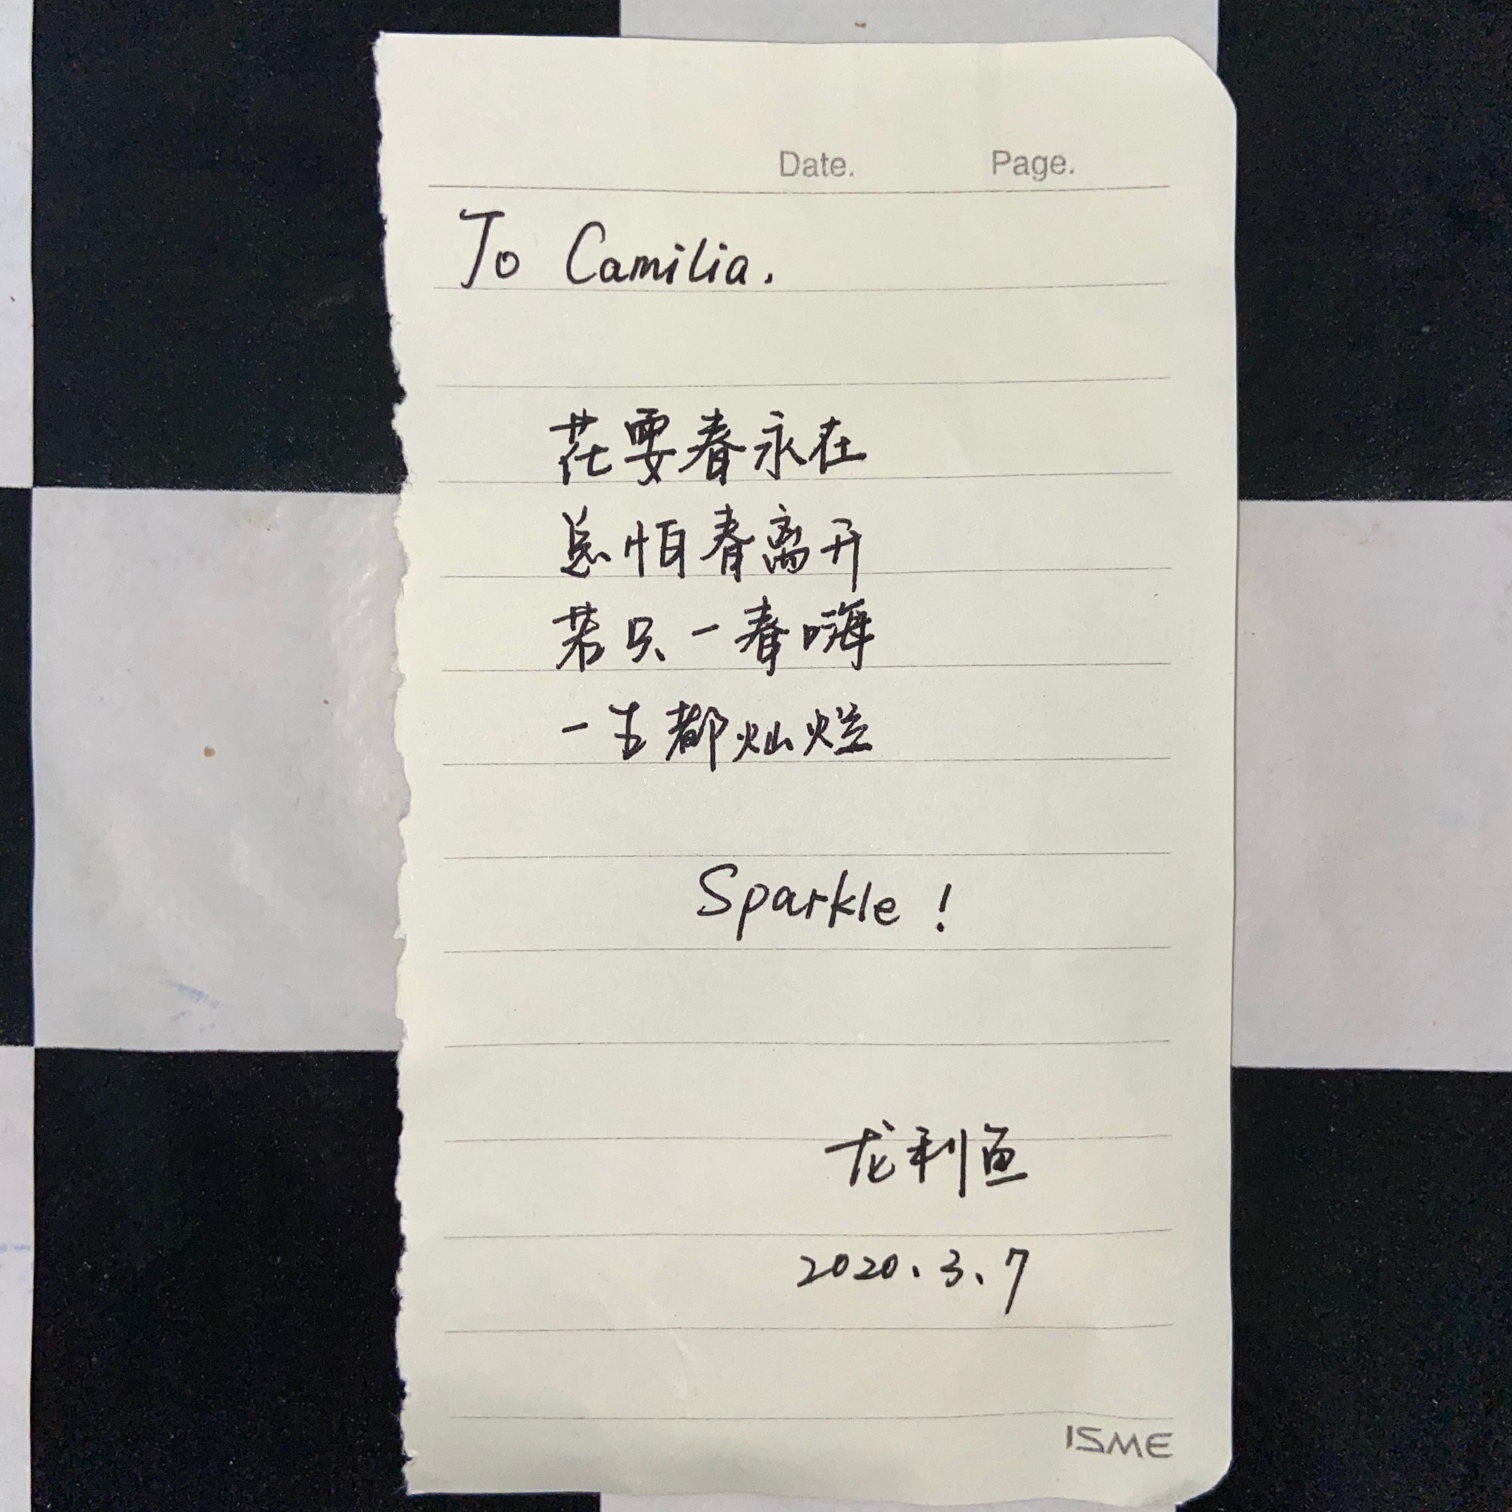 Date. Page.
To Camilia.
花要春永在
总怕春离开
若只一春嗨
一生都灿烂
Sparkle!
龙利鱼
2020.3.7
ISME